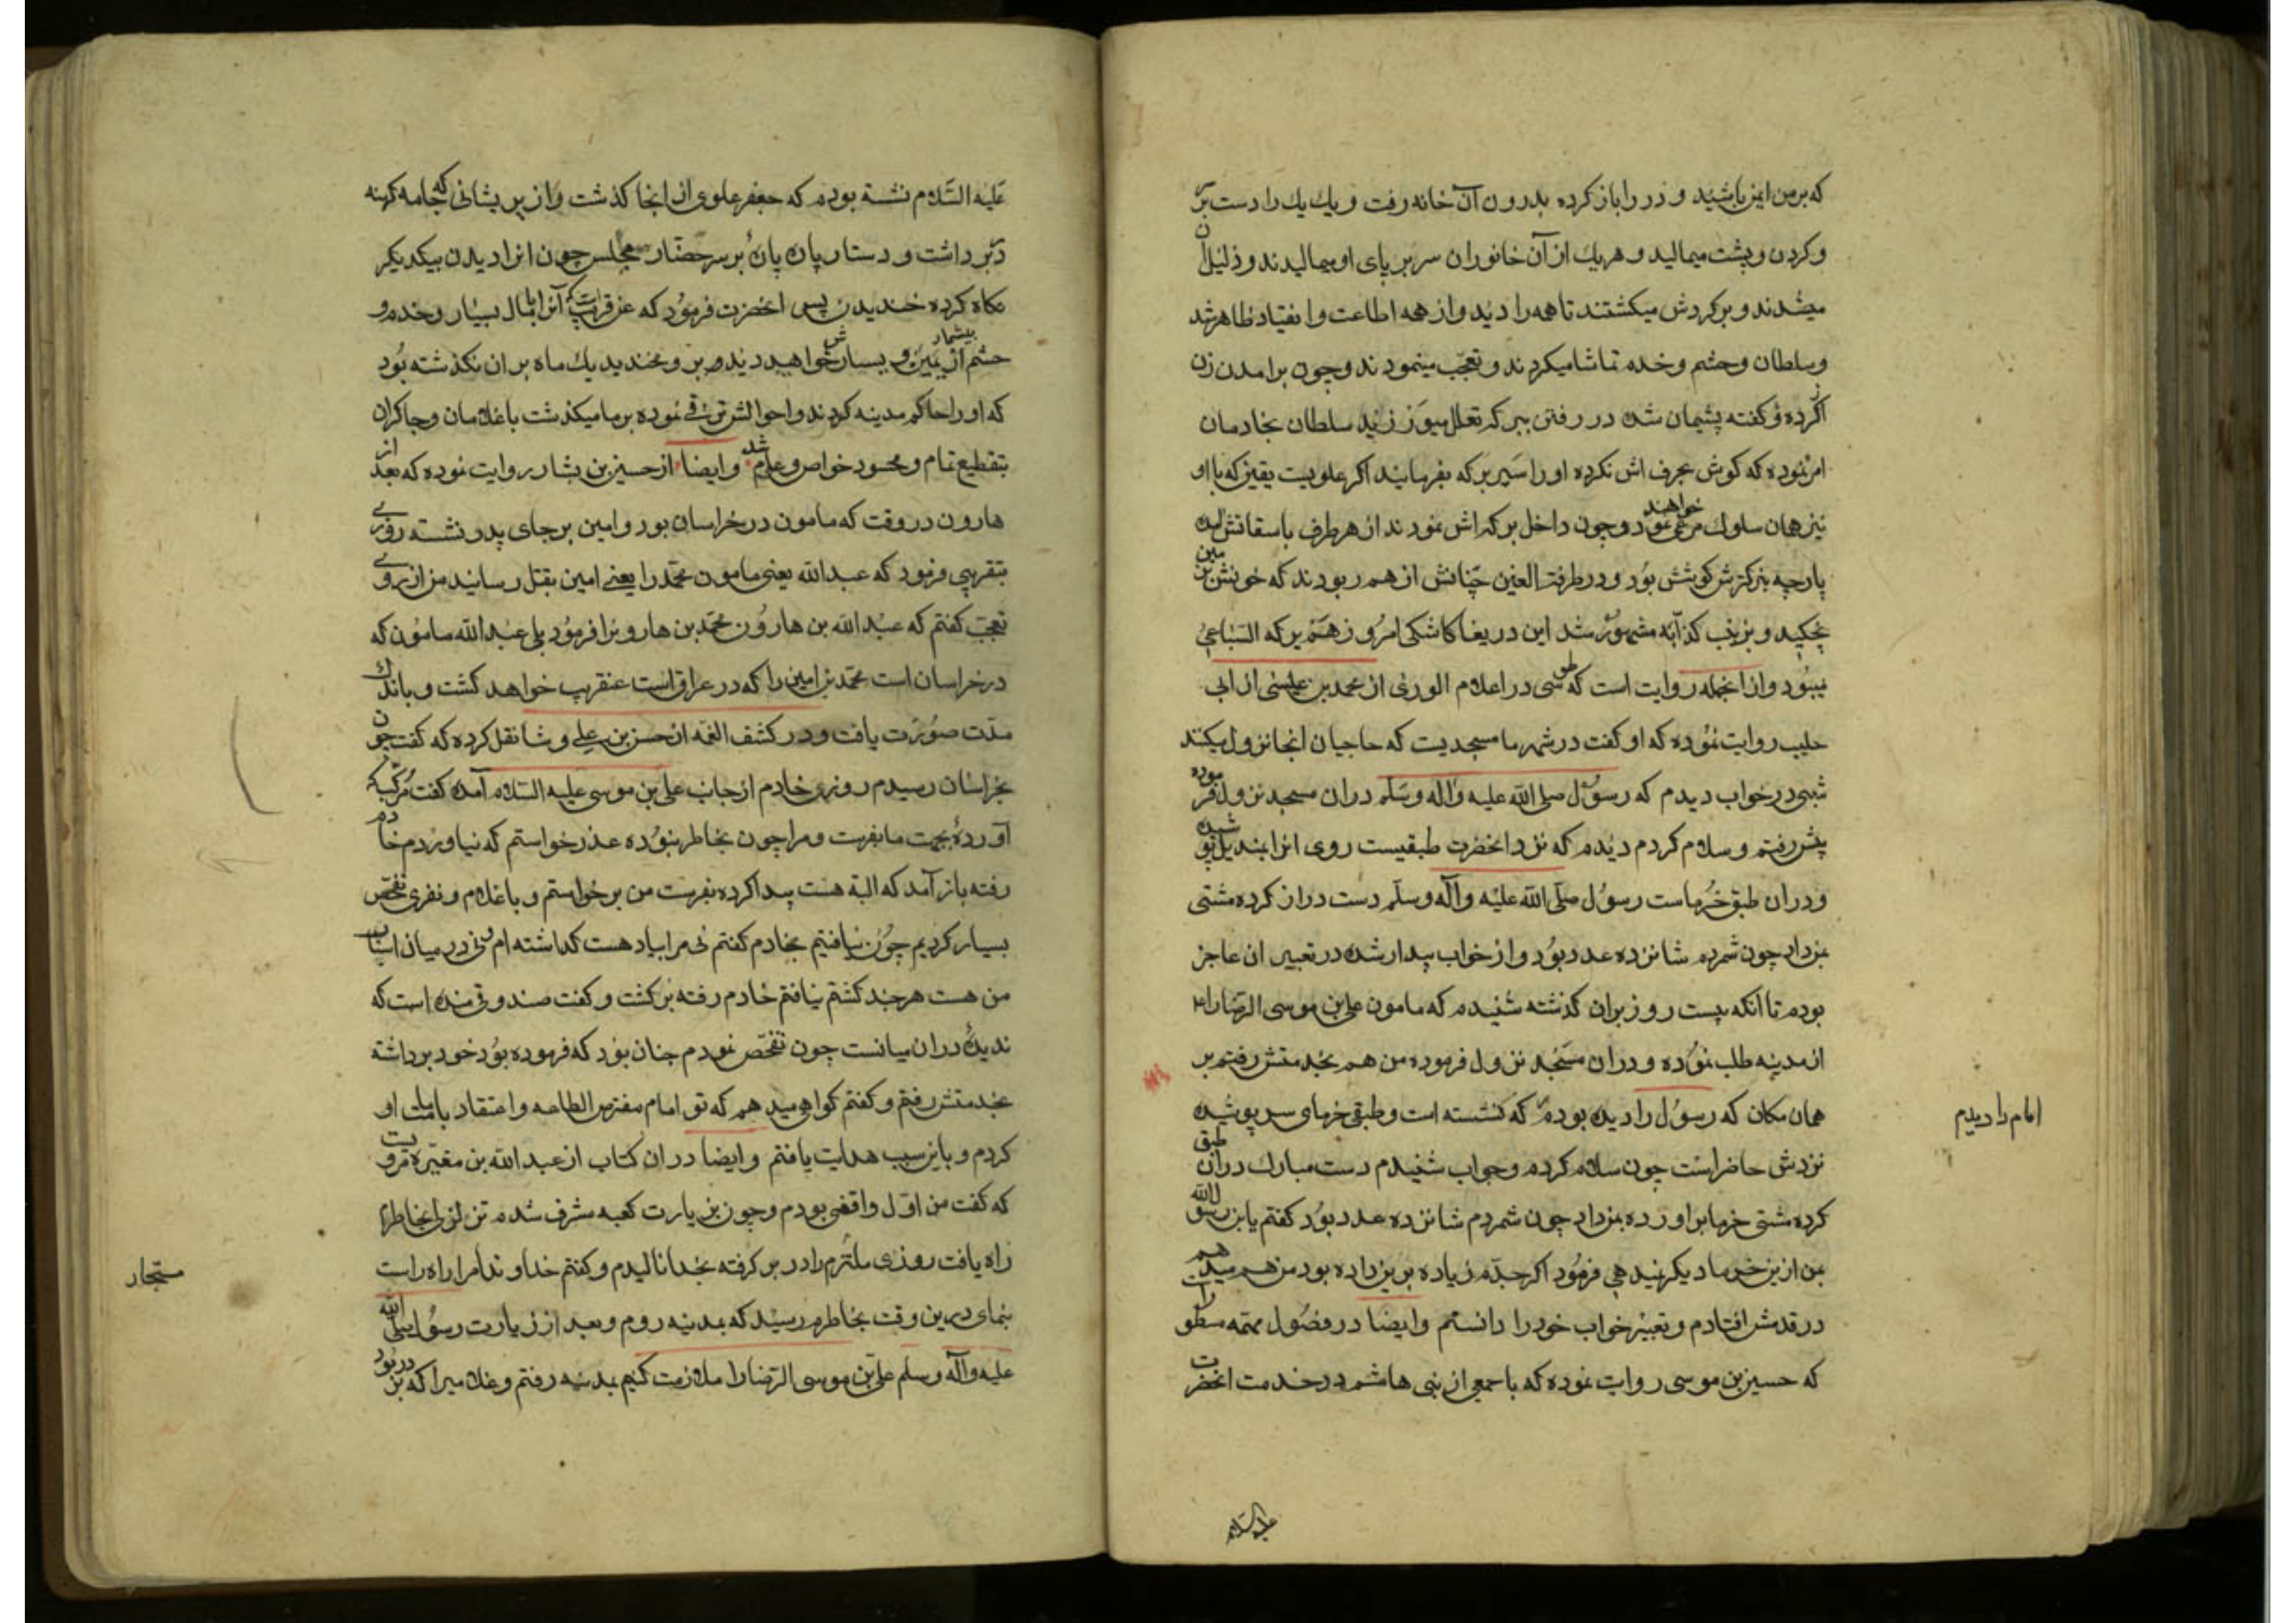 که برمن ایمن باشید و در را باز کرده بدرون آن خانه رفت و یک یک را دست بر سر
و کردن و پشت میمالید و هر یک از آن خانوران سر بر پای او میمالیدند و ذلیل آن
میشدند و بر کردش میکشتند تا همه را دید و از همه اطاعت و انقیاد ظاهر شد
و سلطان و حشم و خدم تماشا میکردند و تعجب مینمودند و چون برامدن زن
کرده و کفته پشیمان شده در رفتن ببرکه تعلل میورزید سلطان بخادمان
امر نموده که کوش بحرف اش نکرده او را سیر برکه بفرمایند اکر علویست یقین که با او
نیز همان سلوک مرعی خواهند نمود و چون داخل برکه اش نمودند از هر طرف باستقانش امده
پارچه بزرکترش کوشش بود و در طرفة العین چنانش از هم ربودند که خونش بزمین
نچکید و بزینب کذابه مشهور شد این دریغا کاشکی امروز هم برکه السباعی
میبود و از انجمله روایت است که طوسی در اعلام الوری از محمد بن عیسی از ابی
حبیب روایت نموده که او کفت در شهر ما مسجدیست که حاجیان انجا نزول میکند
شبی در خواب دیدم که رسول صلی الله علیه واله وسلم در ان مسجد نزول فرموده
پیش رفتم و سلام کردم دیدم که نزد انحضرت طبقیست روی انرا بمندیل پوشیده
و در ان طبق خرماست رسول صلی الله علیه وآله وسلم دست دراز کرده مشتی
بمن داد چون شمردم شانزده عدد بود و از خواب بیدار شده در تعبیر ان عاجز
بودم تا انکه بیست روز بران کذشته شنیدم که مامون علی بن موسی الرضا را
از مدینه طلب نموده و در ان مسجد نزول فرموده من هم بخدمتش رفتم بر
همان مکان که رسول را دیده بودم که نشسته است و طبقی خرمای سر پوشیده
امام را دیدم
نزدش حاضر است چون سلام کردم و جواب شنیدم دست مبارک در ان طبق
کرده مشتی خرما بر اورده بمن داد چون شمردم شانزده عدد بود کفتم یابن رسول الله
من ازین خرما دیکر نیدهی فرمود اکر جدم زیاده برین داده بود من هم میدهم
در قدمش افتادم و تعبیر خواب خود را دانستم و ایضا در فصول مهمه مسطور است
که حسین بن موسی روایت نموده که با جمعی از بنی هاشم در خدمت انحضرت
علیه السلام
علیه السلام نشسته بودم که جعفر علوی از انجا کذشت و از پریشانی که جامه کهنه
در بر داشت و دستار پاره پاره بر سر حضار مجلس چون انرا دیدن بیکدیکر
نکاه کرده خندیدن پس انحضرت فرمود که عن قریب است که آنرا با مال بسیار و خدم و
حشم از یمین و یسار بیشمار خواهید دیدش صبر و مخندید یک ماه بر ان نکذشته بود
که او را حاکم مدینه کردند و احوالش ترقی نموده بر ما میکذشت با غلامان و چاکران
بتقطیع تمام و محسود خواص و عام شد و ایضا از حسین بن بشار روایت نموده که بعد از
هارون در وقت که مامون در خراسان بود و امین بر جای پدر نشسته روزی
بتقریبی فرمود که عبدالله یعنی مامون محمد را یعنی امین بقتل رساند من از روی
تعجب کفتم که عبدالله بن هارون محمد بن هارونرا فرمود بلی عبدالله مامون که
در خراسان است محمد بن امین را که در عراق است عنقریب خواهد کشت و باندک
مدت صورت یافت و در کشف الغمه از حسن بن علی وشا نقل کرده که کفت چون
بخراسان رسیدم روزی خادم از جانب علی بن موسی علیه السلام آمده کفت
آورده بجهت ما بفرست و مرا چون بخاطر نبوده عذر خواستم که نیاوردم خادم
رفته باز آمد که البته هست پیدا کرده بفرست من بر خواستم و با غلام و نفری تفحص
بسیار کردیم چون نیافتیم بخادم کفتم نی مرا بیاد هست کداشته ام و نی در میان اسباب
من هست هر چند کشتم نیافتم خادم رفته بر کشت و کفت صندوقی منده است که
ندیدهٔ در ان میانست چون تفحص نمودم چنان بود که فرموده بود خود برداشته
بخدمتش رفتم و کفتم کواهی میدهم که تو امام مفترض الطاعه و اعتقاد بامامت او
کردم و باین سبب هدایت یافتم و ایضا در ان کتاب از عبدالله بن مغیره مرویست
که کفت من اول واقفی بودم و چون بزیارت کعبه مشرف شدم تزلزلی بخاطرم
راه یافت روزی ملتزم را در بر کرفته بخدا نالیدم و کفتم خداوندا مرا راه راست
مستجار
بنمای در ین وقت بخاطرم رسید که بمدینه روم و بعد از زیارت رسول صلی الله
علیه وآله وسلم علی بن موسی الرضا را ملازمت کنیم بمدینه رفتم و غلامیرا که بر در بود